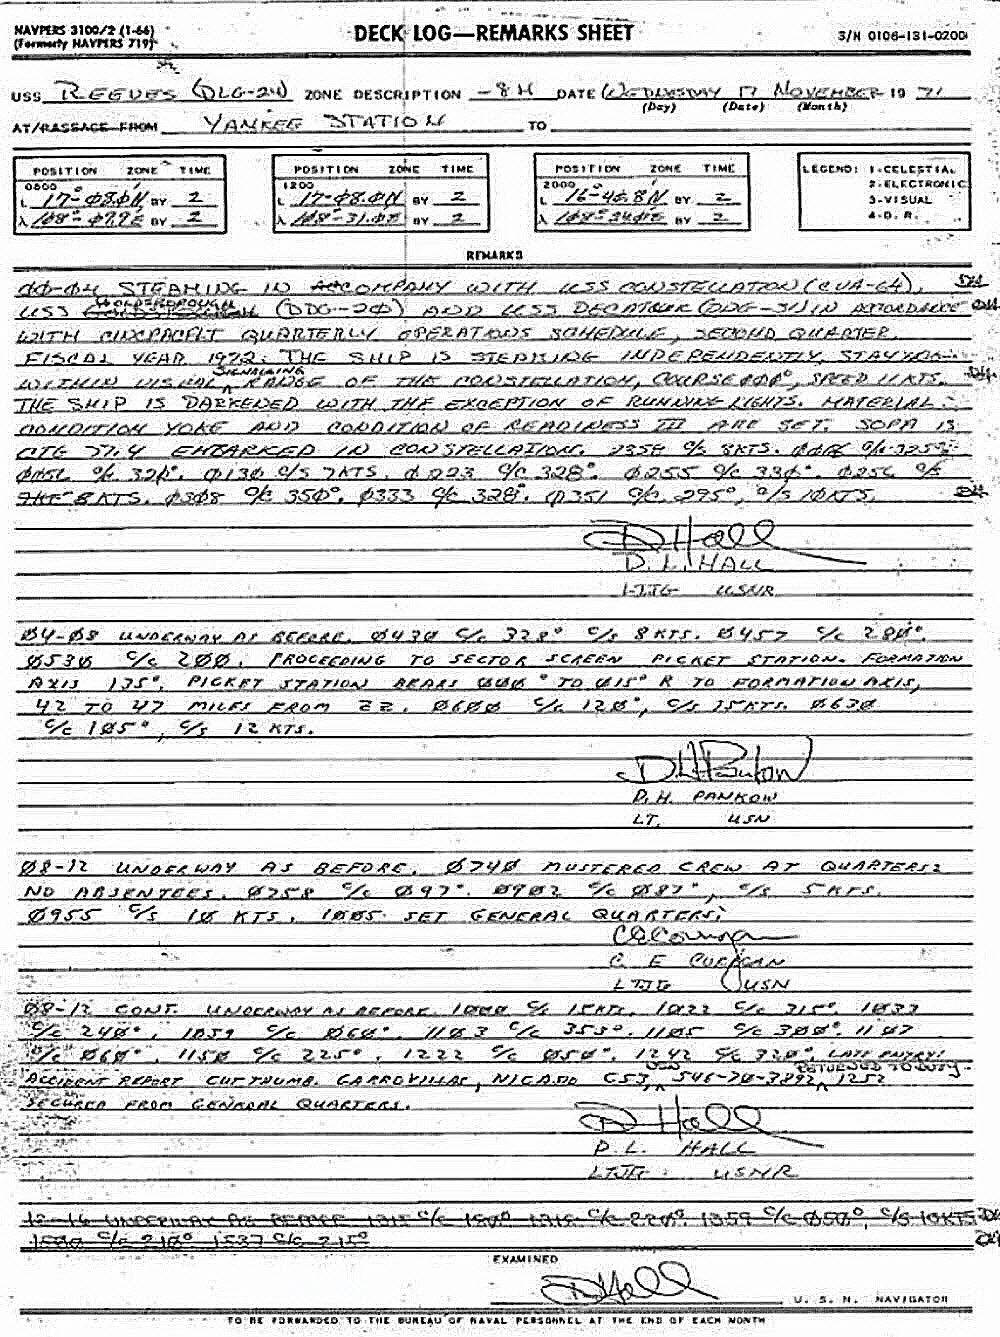 NAVPERS 3100/2 (1-66)
(Formerly NAVPERS 719)
DECK LOG—REMARKS SHEET
S/N 0106-131-0200
USS REEVES (DLG-24) ZONE DESCRIPTION -8H DATE WEDNESDAY 17 NOVEMBER 19 71
(Day) (Date) (Month)
AT/PASSAGE FROM YANKEE STATION TO
POSITION ZONE TIME
0800
L 17-08.0N BY 2
λ 108- BY 2
POSITION ZONE TIME
1200
L 17-08.0N BY 2
λ 108-31.0E BY 2
POSITION ZONE TIME
2000
L 16-46.8N BY 2
λ 108-24.0E BY 2
LEGEND: 1-CELESTIAL
2-ELECTRONIC
3-VISUAL
4-D. R.
REMARKS
00-04 STEAMING IN COMPANY WITH USS CONSTELLATION (CVA-64), DH
USS GOLDSBOROUGH (DDG-20) AND USS DECATUR (DDG-31) IN ACCORDANCE DH
WITH CINCPACFLT QUARTERLY OPERATIONS SCHEDULE, SECOND QUARTER,
FISCAL YEAR 1972. THE SHIP IS STEAMING INDEPENDENTLY, STAYING
WITHIN VISUAL SIGNALING RANGE OF THE CONSTELLATION, COURSE 000°, SPEED 11 KTS. DH
THE SHIP IS DARKENED WITH THE EXCEPTION OF RUNNING LIGHTS. MATERIAL
CONDITION YOKE AND CONDITION OF READINESS III ARE SET. SOPA IS
CTG 77.4 EMBARKED IN CONSTELLATION. 2358 C/S 8KTS. C/C 325°.
C/C 320°. 0130 C/S 7KTS. 0223 C/C 328°. 0255 C/C 330°. 0256 C/S
8 KTS. 0308 C/C 350°. 0333 C/C 328°. 0351 C/C 295°, C/S 10KTS. DH
D Hall
D. L. HALL
LTJG USNR
04-08 UNDERWAY AS BEFORE. 0430 C/C 328° C/S 8 KTS. 0457 C/C 280°.
0530 C/C 200. PROCEEDING TO SECTOR SCREEN PICKET STATION. FORMATION
AXIS 135°. PICKET STATION BEARS 000° TO 015° R TO FORMATION AXIS,
42 TO 47 MILES FROM ZZ. 0600 C/C 120°, C/S 15KTS. 0630
C/C 105°, C/S 12 KTS.
D.H. Pankow
D. H. PANKOW
LT. USN
08-12 UNDERWAY AS BEFORE. 0740 MUSTERED CREW AT QUARTERS:
NO ABSENTEES. 0758 C/C 097°. 0902 C/C 087°, C/S 5 KTS.
0955 C/S 10 KTS. 1005 SET GENERAL QUARTERS;
C E
LTJG USN
08-12 CONT. UNDERWAY AS BEFORE. 1000 C/S 15KTS. 1022 C/C 315°. 1033
C/C 240°, 1059 C/C 060°. 1103 C/C 353°. 1105 C/C 300°. 1107
C/C 060°. 1150 C/C 225°. 1222 C/C 050°. 1242 C/C 320°. LATE ENTRY:
ACCIDENT REPORT CUT THUMB. GARROVILLAS, NICASIO CS3, USN 546-78-3892, RETURNED TO DUTY. 1252
SECURED FROM GENERAL QUARTERS.
D Hall
D. L. HALL
LTJG USNR
12-16 UNDERWAY AS BEFORE 1315 C/C 150° 1318 C/C 220° 1359 C/C 050°, C/S 10KTS DH
1500 C/C 210° 1537 C/C 215° DH
EXAMINED
D Hall
U. S. N. NAVIGATOR
TO BE FORWARDED TO THE BUREAU OF NAVAL PERSONNEL AT THE END OF EACH MONTH